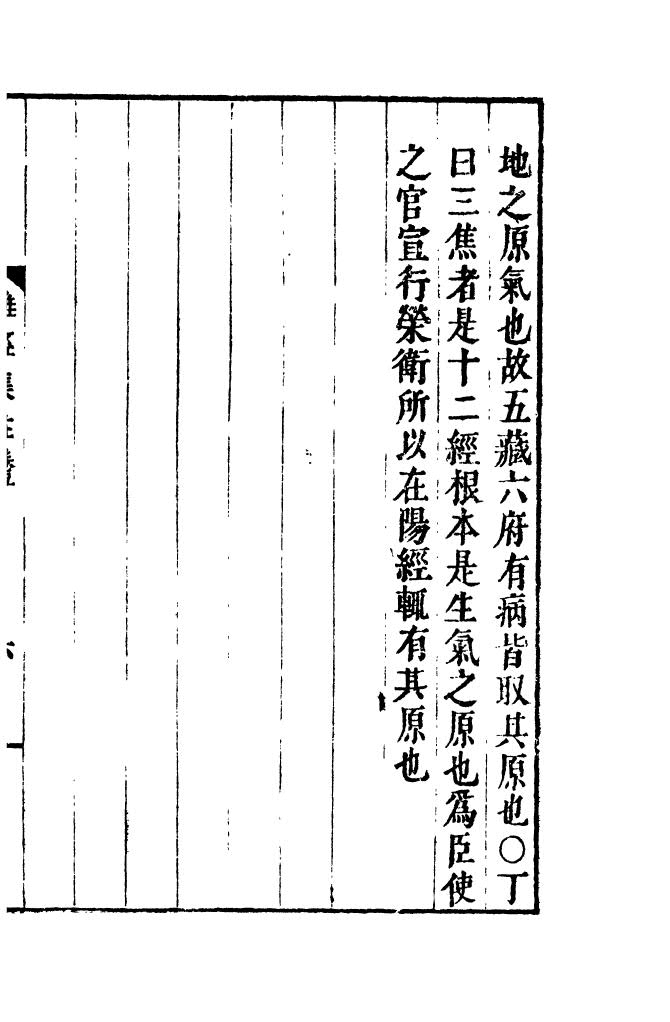 地之原氣也故五藏六府有病皆取其原也○丁
曰三焦者是十二經根本是生氣之原也爲臣使
之官宣行榮衛所以在陽經輒有其原也